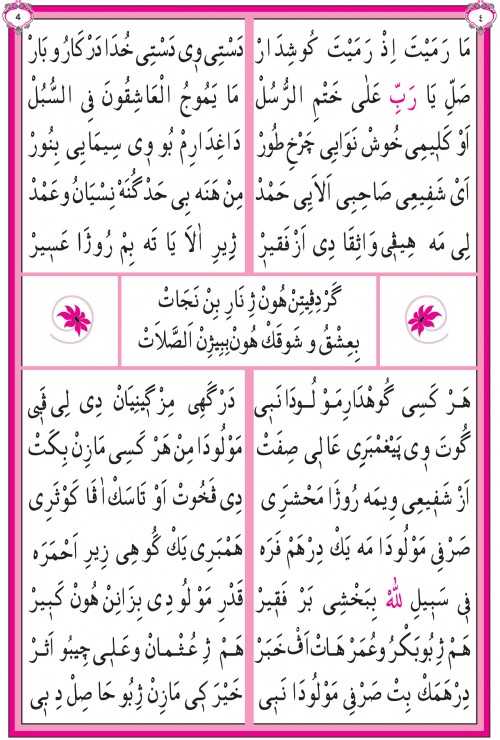 ٤
4
مَا رَمَيْتَ اِذْ رَمَيْتَ كُوشِدَارْ دَسْتِى وِى دَسْتِى خُدَا دَرْ كَارُو بَارْ
صَلِّ يَا رَبِّ عَلٰى خَتْمِ الرُّسُلْ مَا يَمُوجُ الْعَاشِقُونَ فِى السُّبُلْ
اَوْ كَلِيمِى خُوشْ نَوَايِى چَرْخِ طُورْ دَاغِدَارِمْ بُو وِى سِيمَايِى بِنُورْ
اَىْ شَفِيعِى صَاحِبِى اَلَايِى حَمْدْ مِنْ هَنَه بِى حَدْ گُنَهْ نِسْيَانُ وعَمْدْ
لِى مَه هِيڤِى وَاثِقَا دِى اَزْ فَقِيرْ ژِيرِ اٰلَا يَا تَه بِمْ رُوژَا عَسِيرْ
گَرْ دِڤِيتِنْ هُونْ ژِ نَارِ بِنْ نَجَاتْ
بِعِشْقُ و شَوقَكْ هُونْ بِبِيژِنْ اَلصَّلَاتْ
هَرْ كَسِى گُوهْدَارِ مَوْلُودَا نَبِى دَرْگَهِى مِزْگِينِيَانْ دِى لِى ڤَبِى
گُوتَ وِى پَيْغَمْبَرِى عَالِى صِفَتْ مَوْلُودَا مِنْ هَرْ كَسِى مَازِنْ بِكَتْ
اَزْ شَفِيعِى وِيمَه رُوژَا مَحْشَرِى دِى ڤَخُوتْ اَوْ تَاسَكْ اٰڤَا كَوْثَرِى
صَرْفِى مَوْلُودَا مَه يَكْ دِرْهَمْ فَرَه هَمْبَرِى يَكْ كُوهِى زِيرِ اَحْمَرَه
فِى سَبِيلِ لِلّٰهْ بِبَخْشِى بَرْ فَقِيرْ قَدْرِ مَوْلُودِى بِزَانِنْ هُونْ كَبِيرْ
هَمْ ژِبُوبَكْرُ وعُمَرْ هَاتْ اَڤْ خَبَرْ هَمْ ژِ عُثْمَانْ وعَلِى چِيبُو اَثَرْ
دِرْهَمَكْ بِتْ صَرْفِى مَوْلُودَا نَبِى خَيْرَكِى مَازِنْ ژِبُو حَاصِلْ دِبِى